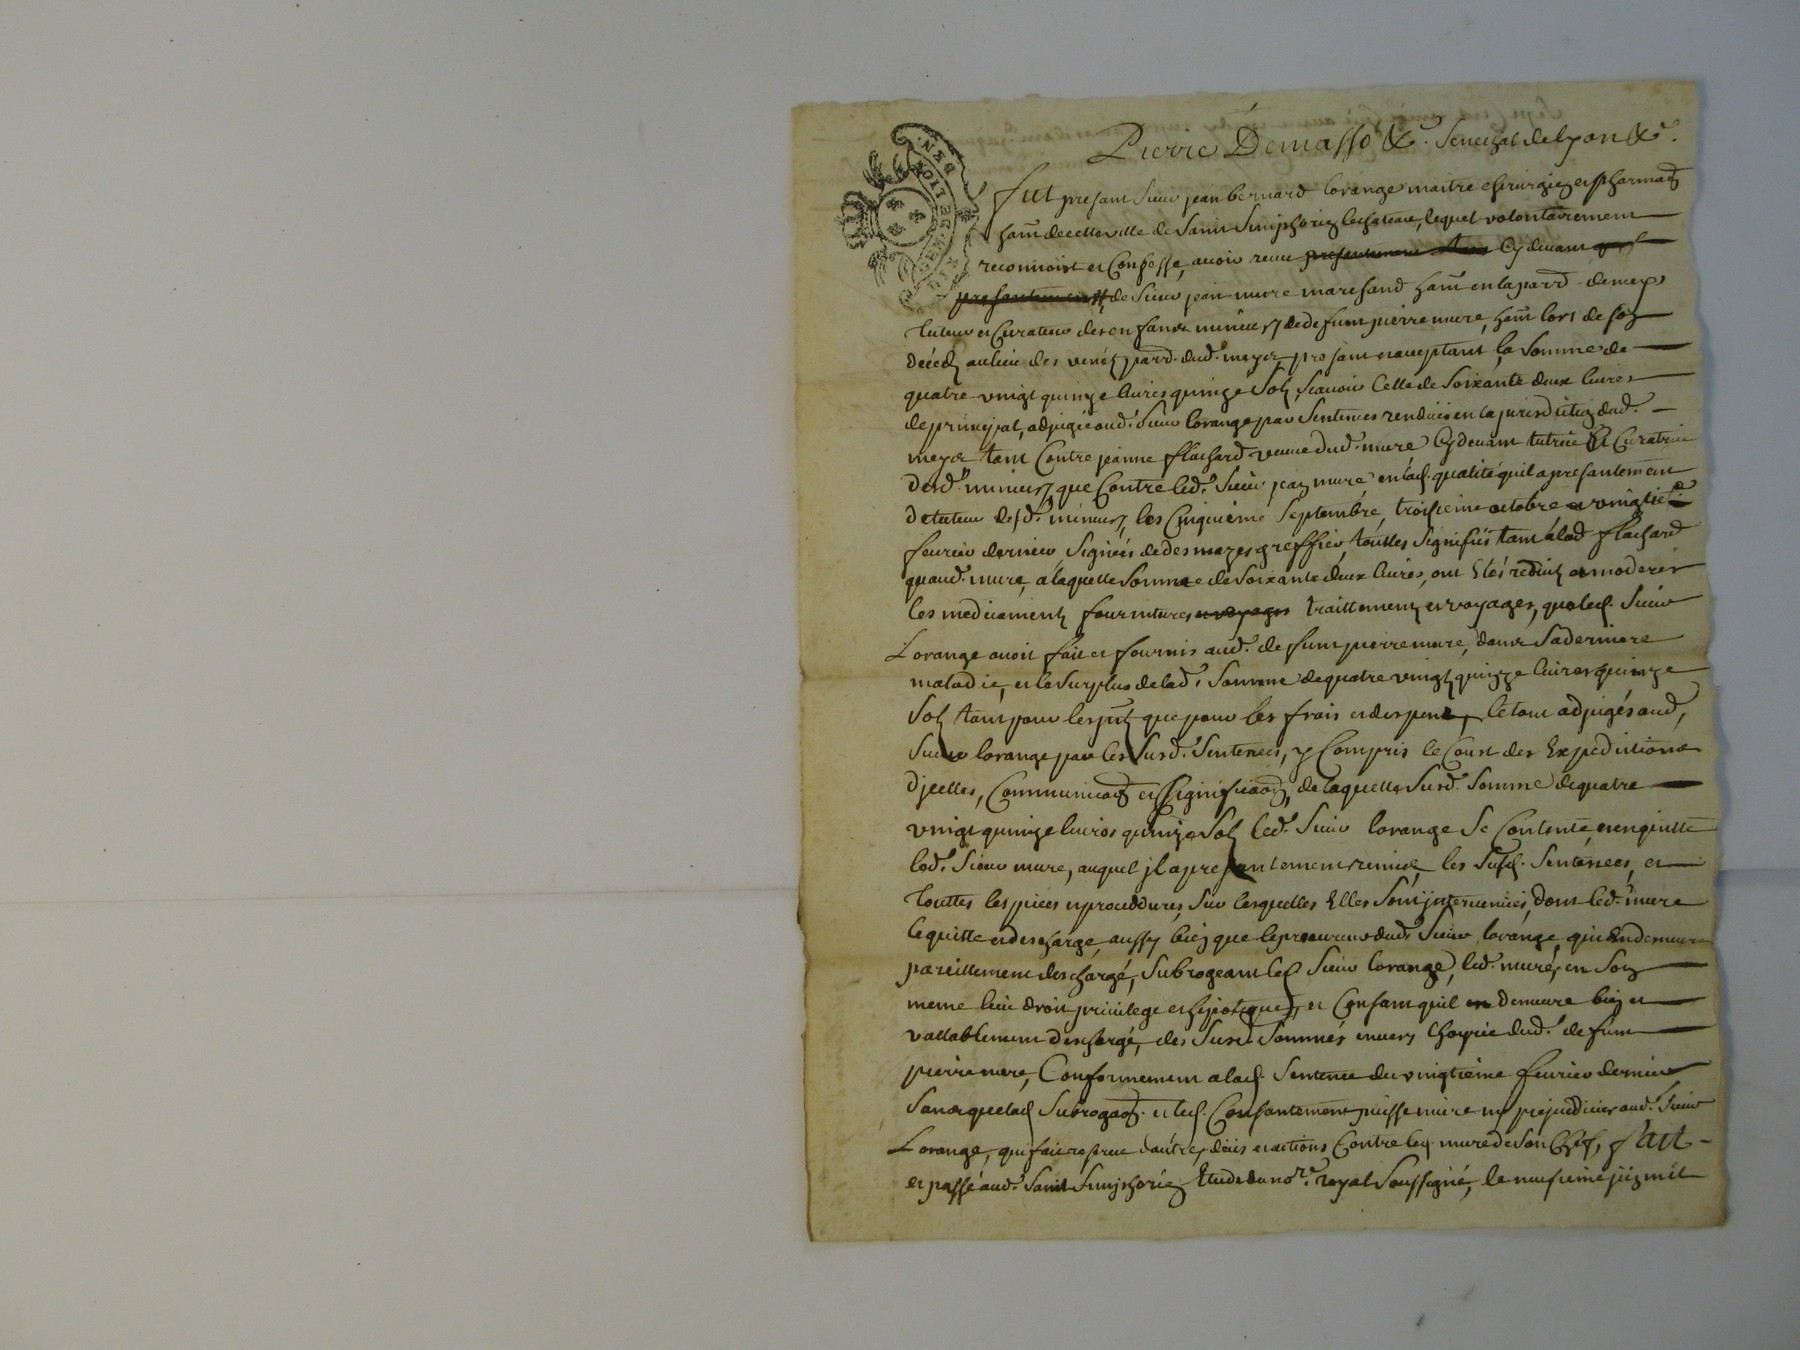 GEN. DE LION
Pierre Demasso &c. Senechal de Lyon &c.
fut presant Sieur jean bernard lorange maitre chirurgien et pharmad
hant de cette ville de Saint Simphorien le chateau, lequel volontairement
reconnoist et Confesse, avoir receu presentement Cy devant
presantement de Sieur jean mure marchand hant en la parr de meys
tuteur et Curateur des enfans mineurs de defunt pierre mure, hant lors de son
décéd au lieu des parr. dud. meyz presant et aceptant, la Somme de
quatre vingt quinze livres quinze Sols, Scavoir Celle de Soixante deux livres
de principal, adjugée aud. Sieur lorange par Sentences rendües en la jurisdiction dud.
meyz tant Contre jeanne flachard veuve dud. mure Cy devant tutrice et Curatrice
desd. mineurs que Contre led. Sieur jean mure en lad. qualité quil a presantement
de tuteur desd. mineurs, les Cinquieme Septembre, troisieme octobre et vingtie
fevrier dernier Signées de desmazes greffier, touttes Signifiés tant à lad flachard
quaud. mure, a laquelle Somme de Soixante deux livres, ont Etés reduits et moderés
les medicaments fournitures et voyages traittements et voyages, que led. Sieur
Lorange avoit fait et fournis aud. defunt pierre mure, dans Sa derniere
maladie, et le Surplus de lad. Somme de quatre vingts quinze livres quinze
Sols tant pour que pour les frais et despens, le tout adjugés aud.
Sieur lorange par les Susd. Sentences, y Compris le Coust des Expeditions
djcelles, Communicaon et Significaon, de laquelle Susd. Somme de quatre
vingt quinze livres quinze Sols led. Sieur lorange Se Contente, et en quitte
led. Sieur mure, auquel jl a presantement remis les Susd. Sentences, et
touttes les pieces et proceddures, Sur lesquelles Elles Sont jntervenües, dont led. mure
le quitte et descharge, aussy bien que le procureur dud. Sieur lorange, qui En demeure
pareillement deschargé, Subrogeant led Sieur lorange, led. mure, en Son
meme lieu droit privilege et hipoteque, et Consant quil en demeure bien et
vallablement deschargé, des Susd. Sommes envers hoyrie dud. defunt
pierre mure, Conformement a lad. Sentence du vingtieme fevrier dernier
Sans que lad Subrogaon. et led. Consantement puisse nuire ny prejudicier aud. Sieur
Lorange, qui fait reserve dautres deüs et actions Contre led. mure de Son Chef, fait
et passé aud. Saint Simphorien Etude du nore. royal Soussigné, le neufieme juin mil